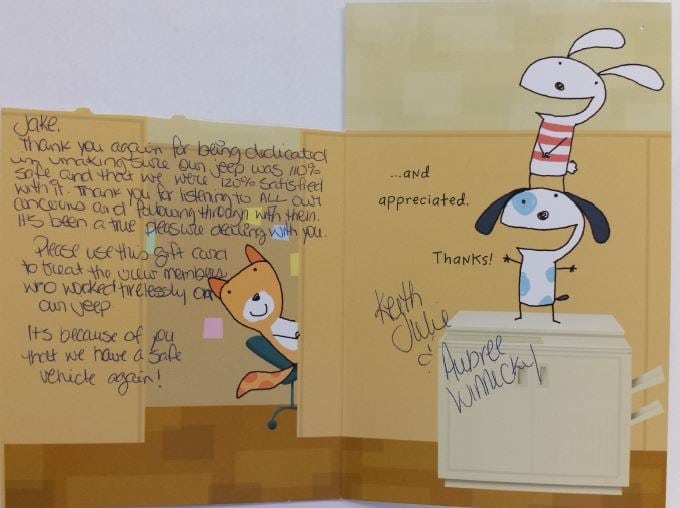 Jake,
Thank you again for being dedicated
in making sure our jeep was 110%
safe and that we were 120% satisfied
with it. Thank you for listening to ALL our
concerns and following through with them.
It's been a true pleasure dealing with you.
Please use this gift card
to treat the crew members
who worked tirelessly on
our jeep.
Its because of you
that we have a safe
vehicle again!
...and
appreciated.
Thanks!
Keith
Julie
&
Aubree
Winnicky